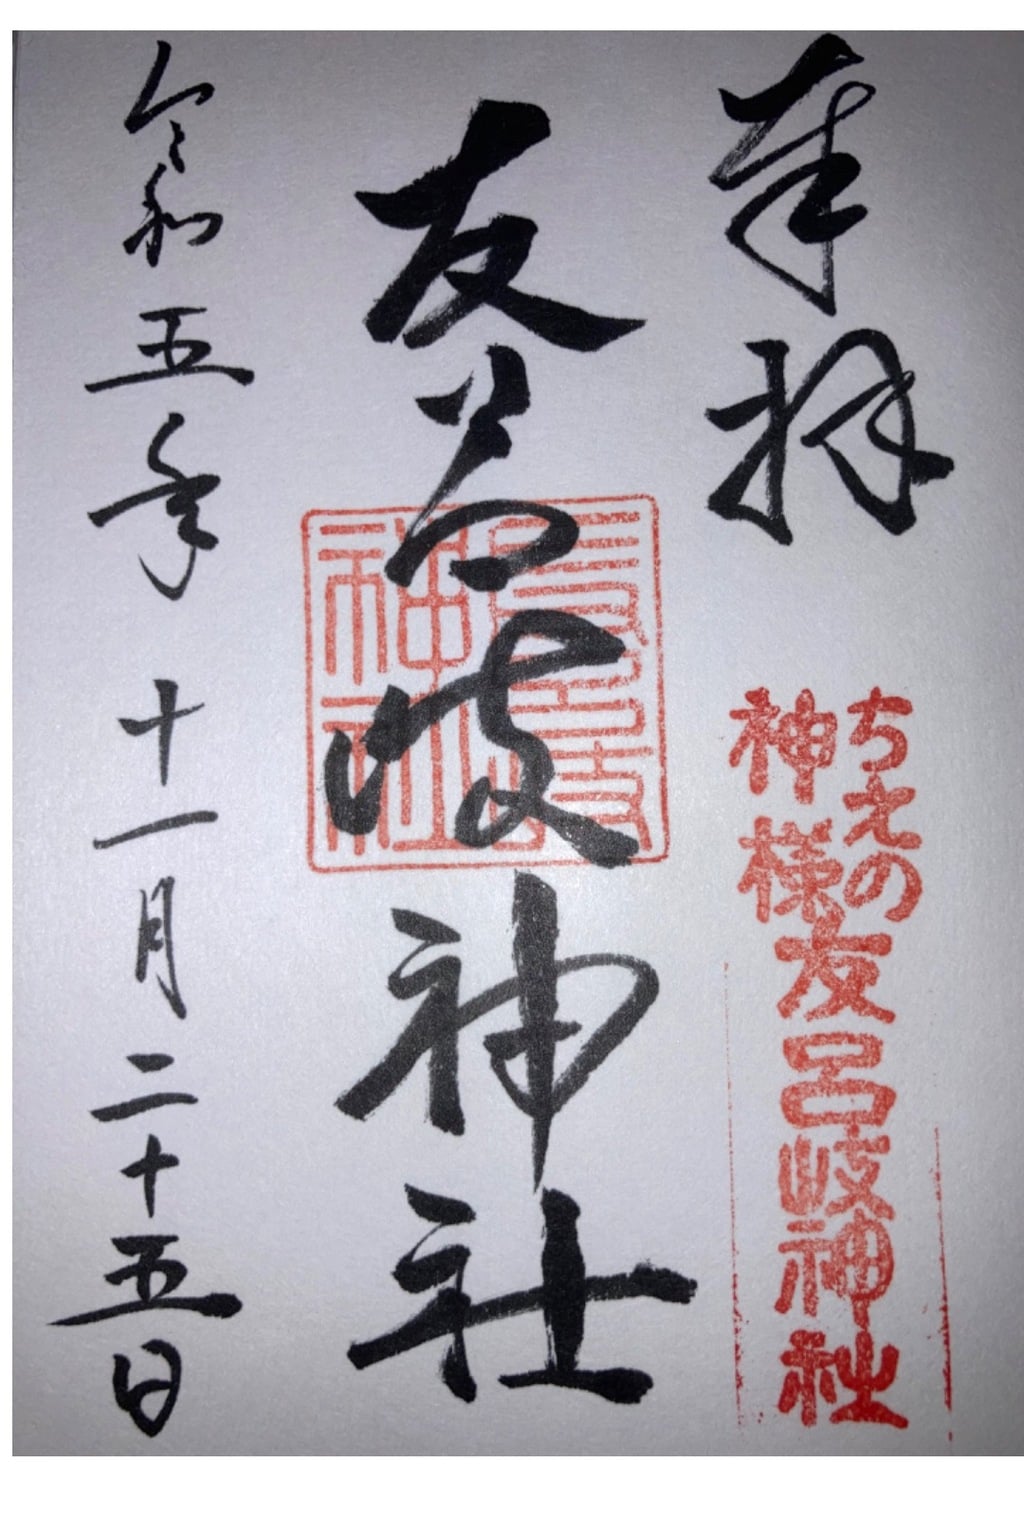 奉拝
ちえの
神様
友呂岐神社
友呂岐神社
友呂岐神社
令和五年十一月二十五日